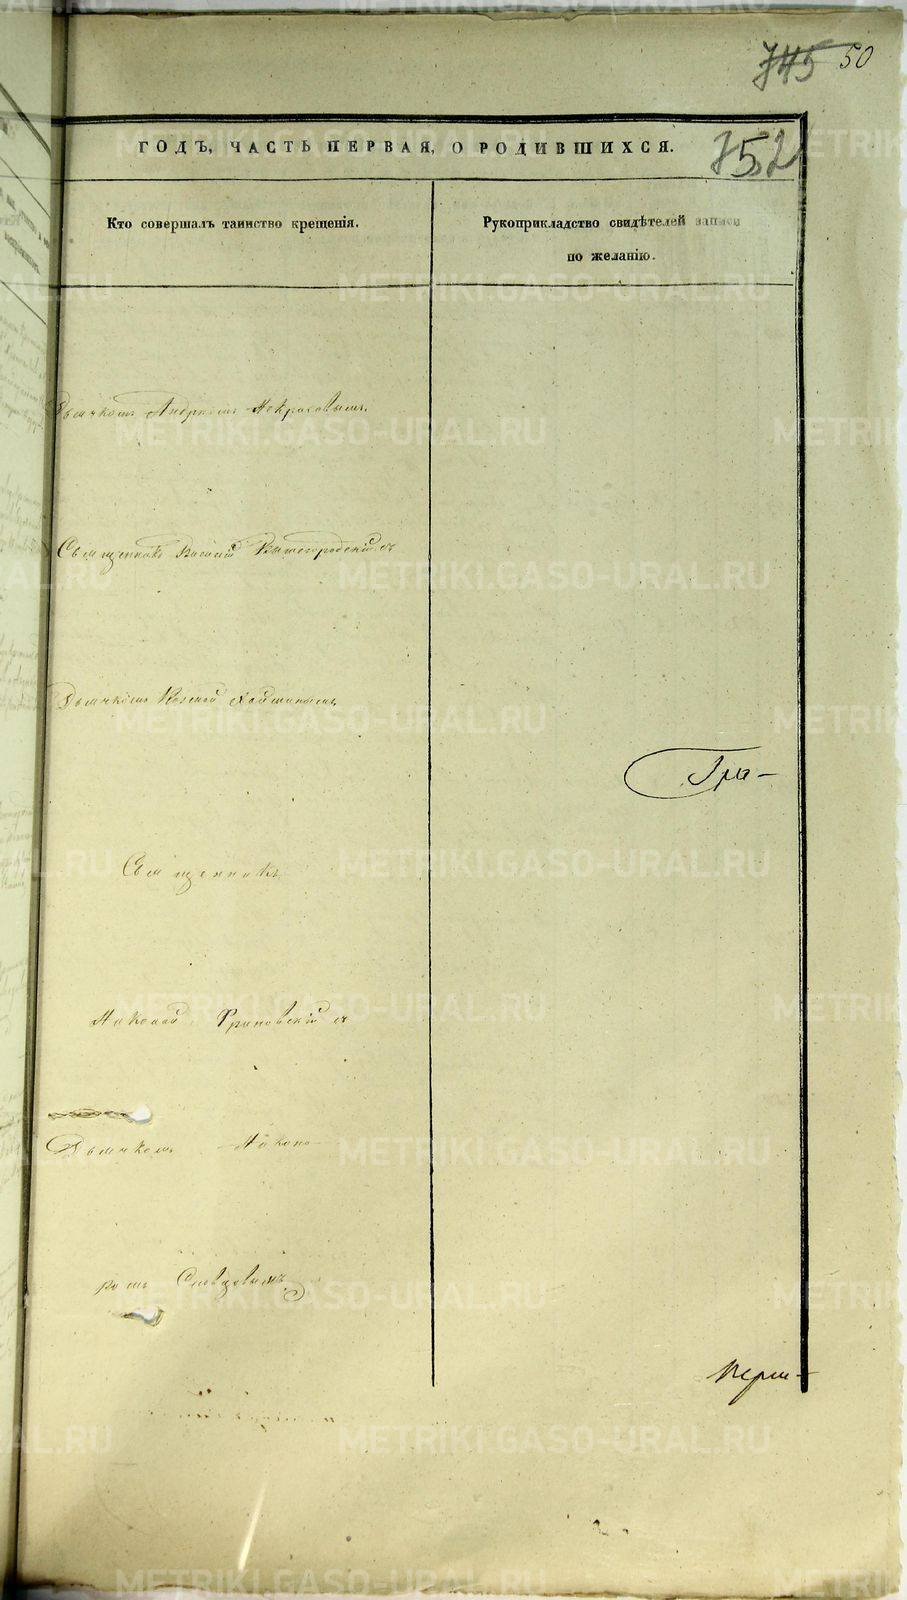 745 50
752
ГОДЪ, ЧАСТЬ ПЕРВАЯ, О РОДИВШИХСЯ.
Кто совершалъ таинство крещенія.
Рукоприкладство свидѣтелей записи
по желанію.
Дьячкомъ Андреемъ Некрасовымъ.
Священникъ Василій Вышегородскій съ
Дьячкомъ Козмой
Гра-
Священникъ
Николай Грановскій съ
Дьячкомъ Никано-
ромъ Словцовымъ
Перм-
METRIKI.GASO-URAL.RU